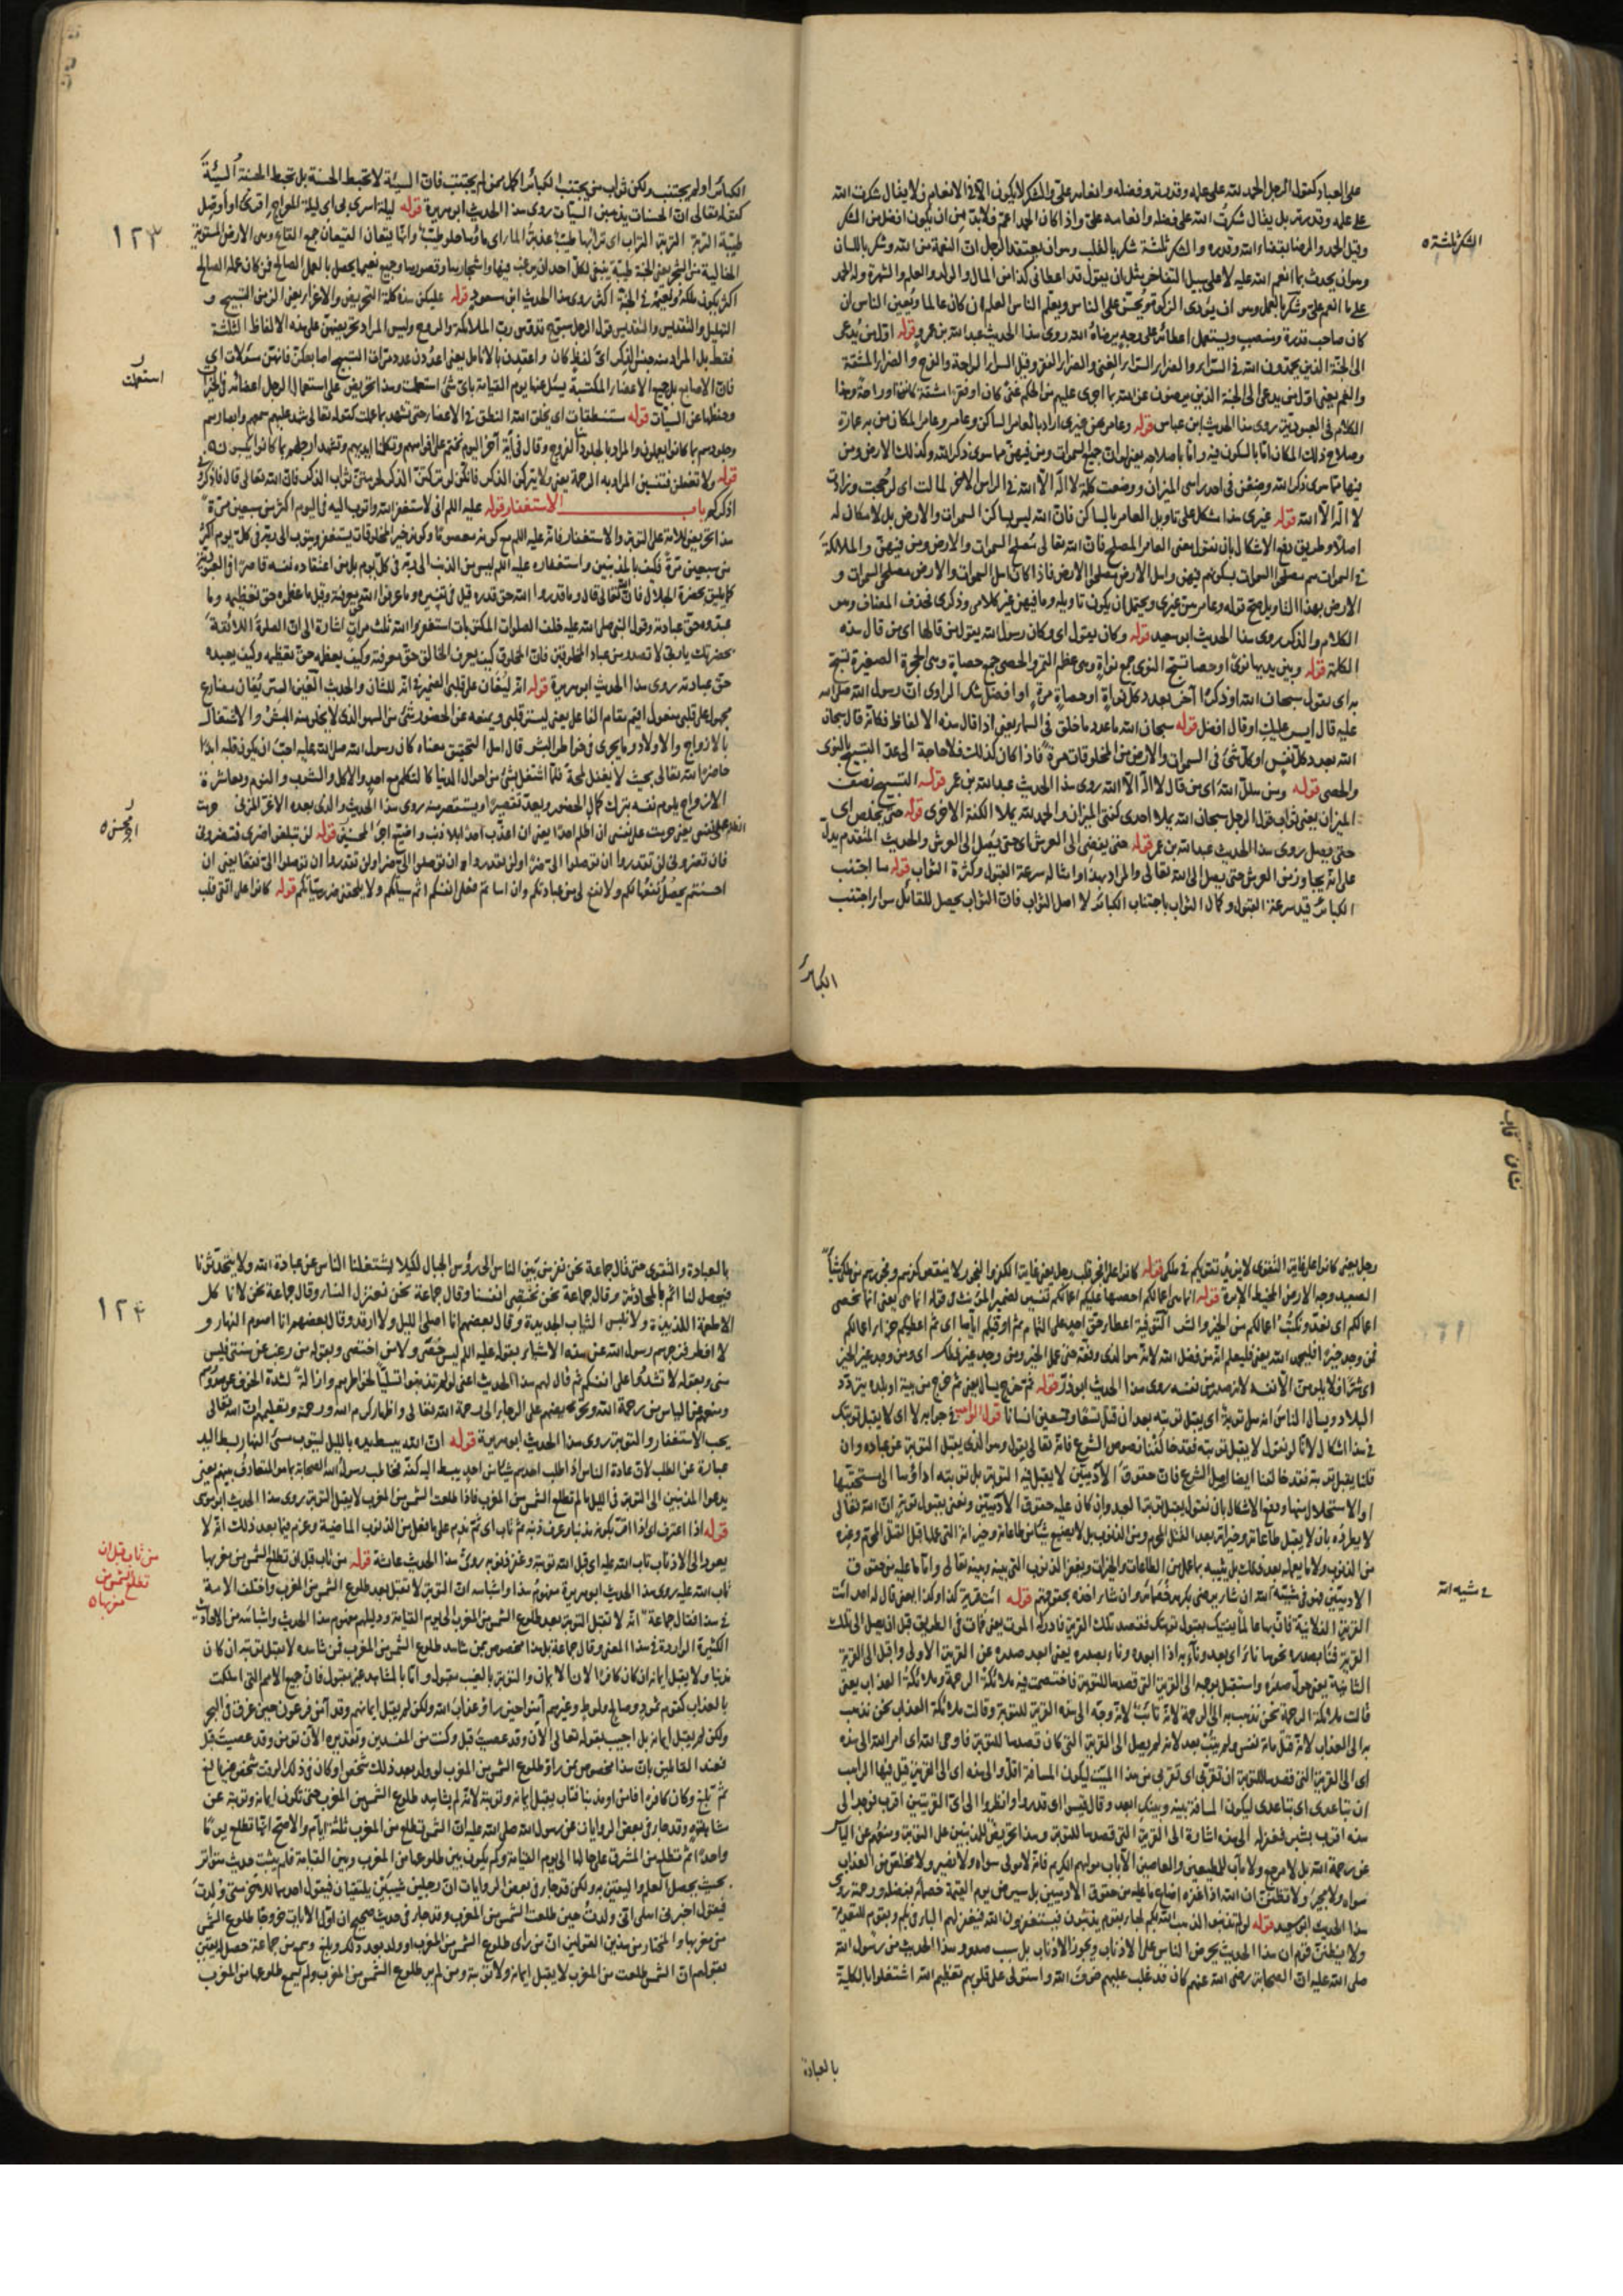 على العباد كقول الرجل الحمد لله على علمه وقدرته وفضله وانعامه على والشكر لا يكون الا في الانعام فلا يقال شكرت الله
على علمه وقدرته بل يقال شكرت الله على فضله وانعامه على واذا كان الحمد اعم فلا بد من ان يكون افضل من الشكر
وقيل الحمد والرضا بقضاء الله وقدره والشكر ثلثة شكر بالقلب وهو ان يعتقد الرجل ان النعمة من الله وشكر باللسان
الشكر ثلثة
وهو ان يحدث بما انعم الله عليه لا على سبيل التفاخر مثل ان يقول قد اعطاني كذا من المال والولد والعلم والشهرة وله الحمد
على ما انعم على وشكر بالعمل وهو ان يؤدي الزكوة ويحسن على الناس ويعلم الناس العلم ان كان عالما ويعين الناس ان
كان صاحب قدرة ومنصب ويستعمل اعضائه على وجه يرضاه الله روى هذا الحديث عبد الله بن عمرو قوله اول من يدعى
الى الجنة الذين يحمدون الله في السراء والضراء السراء الغنى والضراء الفقر وقيل السراء الراحة والفرح والضراء المشقة
والغم يعني اول من يدعى الى الجنة الذين يرضون عن الله بما اجرى عليهم من الحكم غنى كان او فقرا مشقة كانت او راحة وهذا
الكلام في العبودية روى هذا الحديث ابن عباس قوله وعامرهن غيري اراد بالعامر الساكن وعامر المكان من به عمارة
وصلاح ذلك المكان اما بالسكون فيه واما باصلاحه يعني لو ان جميع السموات ومن فيهن مما سوى ذكر الله وكذلك الارض ومن
فيها مما سوى ذكر الله وضعن في احد راسي الميزان ووضعت كلمة لا اله الا الله في الراس الاخر لمالت اي لرجحت وزادت
لا اله الا الله قوله غيري هذا اشكل على تاويل العامر بالساكن فان الله ليس بساكن السموات والارض بل لا مكان له
اصلا وطريق دفع الاشكال بان نقول معنى العامر المصلح فان الله تعالى مصلح السموات والارض ومن فيهن والملائكة
في السموات هم مصلحوا السموات بسكونهم فيهن واهل الارض مصلحوا الارض فاذا كان اهل السموات والارض مصلحي السموات و
الارض بهذا التاويل صح قوله وعامرهن غيري ويحتمل ان يكون تاويله وما فيهن غير كلامي وذكري فحذف المضاف ومن
الكلام والذكر روى هذا الحديث ابو سعيد قوله وكان يقول اي وكان رسول الله يقول من قالها اي من قال هذه
الكلمة قوله وبين يديها نوى او حصا تسبح النوى جمع نواة وهي عظم التمر والحصى جمع حصاة وهي الحجرة الصغيرة تسبح
به اي تقول سبحان الله او ذكرا آخر بعدد كل نواة او حصاة مرة او افضل شك الراوي ان رسول الله صلى الله
عليه قال ايسر عليك او قال افضل قوله سبحان الله ما عدد ما خلق في السماء يعني اذا قال هذه الالفاظ فكانه قال سبحان
الله بعدد كل نفس او كل شيء في السموات والارض من المخلوقات مرة فاذا كان كذلك فلا حاجة الى عد التسبيح بالنوى
والحصى قوله ومن هلل الله اي من قال لا اله الا الله روى هذا الحديث عبد الله بن عمر قوله التسبيح نصف
الميزان يعني ثواب قول الرجل سبحان الله يملا احدى كفتي الميزان والحمد لله يملا الكفة الاخرى قوله حتى يخلص اي
حتى يصل روى هذا الحديث عبد الله بن عمر قوله حتى يفضي الى العرش اي حتى يصل الى العرش والحديث المتقدم يدل
على انه يجاوز من العرش حتى يصل الى الله تعالى والمراد بهذا وامثاله سرعة القبول وكثرة الثواب قوله ما اجتنب
الكبائر قيد سرعة القبول وكمال الثواب باجتناب الكبائر لا اصل الثواب فان الثواب يحصل للقائل سواء اجتنب
الكبائر
الكبائر او لم يجتنب ولكن ثواب من يجتنب الكبائر اكمل ممن لم يجتنب فان السيئة لا تحبط الحسنة بل تحبط الحسنة السيئة
كقوله تعالى ان الحسنات يذهبن السيات روى هذا الحديث ابو هريرة قوله ليلة اسري بي اي ليلة المعراج اقرئ او أوصل
١٢٣
طيبة التربة التربة التراب اي ترابها طيب عذبة الماء اي ماؤها حلو طيب وانها قيعان القيعان جمع القاع وهي الارض المستوية
الخالية من الشجر يعني الجنة طيبة ينبغي لكل احد ان يرغب فيها واشجارها وقصورها وجميع نعيمها يحصل بالعمل الصالح فمن كان عمله الصالح
اكثر يكون ملكه ونعيمه في الجنة اكثر روى هذا الحديث ابن مسعود قوله عليكن هذه كلمة التحريض والاغراء يعني الزمن التسبيح و
التهليل والتقديس والتقديس قول الرجل سبوح قدوس رب الملائكة والروح وليس المراد تحريضهن على هذه الالفاظ الثلثة
فقط بل المراد منه جنس الذكر اي لفظ كان واعقدن بالانامل يعني اعددن عدد مرات التسبيح باصابعكن فانهن مسئولات اي
استعملت
فان الاصابع بل جميع الاعضاء المكتسبة يسئل عنها يوم القيامة باي شيء استعملت وهذا تحريض على استعمال الرجل اعضائه في الخيرات
وحفظها عن السيات قوله مستنطقات اي يخلق الله النطق في الاعضاء حتى تشهد بما عملت كقوله تعالى شهد عليهم سمعهم وابصارهم
وجلودهم بما كانوا يعملون والمراد بالجلود الفروج وقال في آية اخرى اليوم نختم على افواههم وتكلمنا ايديهم وتشهد ارجلهم بما كانوا يكسبون
قوله ولا تغفلن فتنسين المراد به الرحمة يعني ولا تتركن الذكر فانكن لو تركتن الذكر لحرمتن ثواب الذكر فان الله تعالى قال فاذكروني
اذكركم باب الاستغفار قوله عليه السلام اني لاستغفر الله واتوب اليه في اليوم اكثر من سبعين مرة
هذا تحريض للامة على التوبة والاستغفار فانه عليه السلام مع كونه معصوما وكونه خير المخلوقات يستغفر ويتوب الى ربه في كل يوم اكثر
من سبعين مرة فكيف بالمذنبين واستغفاره عليه السلام ليس من الذنب الى ربه في كل يوم بل من اعتقاده نفسه قاصرا في العبودية
كما يليق بحضرة الجلال فان الله تعالى قال وما قدروا الله حق قدره قيل في تفسيره وما عرفوا الله حق معرفته وقيل ما عظموه حق تعظيمه وما
عبدوه حق عبادته وقول النبي صلى الله عليه خلف الصلوات المكتوبات استغفروا الله ثلث مرات اشارة الى ان الصلوة اللائقة
بحضرتك يا ربي لا تصدر من عبادك المخلوقين فان المخلوق كيف يعرف الخالق حق معرفته وكيف يعظمه حق تعظيمه وكيف يعبده
حق عبادته روى هذا الحديث ابو هريرة قوله انه ليغان على قلبي الضمير في انه للشان والحديث الغين الستر يغان مضارع
مجهول على قلبي مفعول اقيم مقام الفاعل يعني ليستر قلبي ويمنعه عن الحضور شيء من السهو الذي لا يخلو منه البشر والاشتغال
بالازواج والاولاد وما يجري في خواطر البشر قال اهل التحقيق معناه كان رسول الله صلى الله عليه احب ان يكون قلبه ابدا
حاضرا لله تعالى بحيث لا يغفل لمحة فلما اشتغل بشيء من احوال الدنيا كالتكلم مع احد والاكل والشرب والنوم ومعاشرة
الازواج يلوم نفسه بترك كمال الحضور ويعده تقصيرا ويستغفر منه روى هذا الحديث والذي بعده الاغر المزني حرمت
الظلم على نفسي يعني حرمت على نفسي ان اظلم احدا يعني ان اعذب احدا بلا ذنب واضيع اجر المحسنين قوله لن تبلغوا ضري فتضروني
اجر محسن
فان تضروني لن تقدروا ان توصلوا الي ضرا ولن تقدروا ان توصلوا الي نفعا يعني ان
احسنتم يحصل نفعها لكم ولا نفع لي من عبادتكم وان اساتم فعلى انفسكم اثم سيئاتكم ولا يلحقني ضر سياتكم قوله كانوا على اتقى قلب
رجل يعني كانوا على غاية التقوى لا يزيد تقويكم في ملكي قوله كانوا على افجر قلب رجل يعني غاية الكفر والفجور لا ينقص كفرهم وفجورهم من ملكي شيئا
الصعيد وجه الارض المخيط الابرة قوله انما هي اعمالكم احصيها عليكم اعمالكم تفسير لضمير المؤنث في قوله انما هي يعني انما نحصي
اعمالكم اي نعد ونكتب اعمالكم من الخير والشر التوفية اعطاء حق احد على التمام ثم اوفيكم اياها اي ثم اعطيكم جزاء اعمالكم
فمن وجد خيرا فليحمد الله يعني فليعلم انه من فضل الله لانه هو الذي وفقه حتى عمل الخير ومن وجد غير ذلك اي ومن وجد غير الخير
اي شرا فلا يلومن الا نفسه لانه صدر من نفسه روى هذا الحديث ابو ذر قوله ثم خرج يسال يعني ثم خرج من بيته او بلده يتردد
البلاد ويسال الناس انه هل توبة اي يقبل توبته بعد ان قتل تسعة وتسعين انسانا قول الراهب في جوابه لا اي لا يقبل توبتك
في هذا اشكال لانا لو نقول لا يقبل توبته فقد خالفنا نصوص الشرع فانه تعالى يقول وهو الذي يقبل التوبة عن عباده وان
قلنا يقبل توبته فقد خالفنا ايضا اصل الشرع فان حقوق الآدميين لا يقبل فيه التوبة بل توبته اداؤها الى مستحقيها
او الاستحلال منها ودفع الاشكال بان نقول يقبل توبة العبد وان كان عليه حقوق الآدميين ونعني بقبول توبته ان الله تعالى
لا يطرده بان لا يقبل طاعاته وخيراته بعد القتل المحرم ومن الذنوب بل لا يضيع شيئا من طاعاته وخيراته التي عملها قبل القتل المحرم وغيره
من الذنوب ولا ما يعمله بعد ذلك بل يثيبه بما عمل من الطاعات والخيرات ويغفر الذنوب التي بينه وبينه تعالى واما ما عليه من حقوق
الآدميين فهو في مشية الله ان شاء يرضي بكرمه خصمائه وان شاء اخذه بحقوقهم قوله ائت قرية كذا وكذا يعني قال له احد ائت
في مشية الله
القرية الفلانية فان بها عالما يفتيك بقبول توبتك فقصد تلك القرية فادركه الموت يعني فمات في الطريق قبل ان يصل الى تلك
القرية فناء بصدره نحوها ناء اي بعد وناء به اذا ابعده وناء بصدره يعني ابعد صدره عن القرية الاولى واقبل الى القرية
الثانية يعني حول صدره واستقبل بوجهه الى القرية التي قصدها للتوبة فاختصمت فيه ملائكة الرحمة وملائكة العذاب يعني
قالت ملائكة الرحمة نحن نذهب به الى الرحمة لانه تائب لانه وجه الى هذه القرية للتوبة وقالت ملائكة العذاب نحن نذهب
به الى العذاب لانه قتل مائة نفس ولم يتب بعد لانه لم يصل الى القرية التي كان قصدها للتوبة فاوحى الله اي امر الله الى هذه
اي الى القرية التي قصدها للتوبة ان تقربي اي تقربي من هذا الميت ليكون المسافة اقل والى هذه اي الى القرية التي قتل فيها الراهب
ان تباعدي اي تباعدي ليكون المسافة بينه وبينك ابعد وقال قيسوا اي قدروا وانظروا الى اي القريتين اقرب فوجد الى
هذه اقرب بشبر فغفر له الى هذه اشارة الى القرية التي قصدها للتوبة وهذا تحريض للمذنبين على التوبة ومنعهم عن الياس
عن رحمة الله بل لا مرجع ولا مآب للمطيعين والعاصين الا باب مولاهم الكريم فانه لا مولى سواه ولا نصير ولا مخلص من العذاب
سواه ولا مجير ولا تظنن ان الله اذا غفر له اضاع ما عليه من حقوق الآدميين بل سيرضي يوم القيمة خصمائه بفضله ورحمته روى
هذا الحديث ابو سعيد قوله لو لم تذنبوا لذهب الله بكم لجاء بقوم يذنبون فيستغفرون الله فيغفر لهم الباء في بكم وبقوم للتعدية
ولا يظنن قوم ان هذا الحديث يحرض الناس على الاذناب ويجوز الاذناب بل سبب صدور هذا الحديث من رسول الله
صلى الله عليه ان الصحابة رضي الله عنهم كان قد غلب عليهم خوف الله واستولى على قلوبهم تعظيم الله اشتغلوا بالكلية
بالعبادة
بالعبادة والتقوى حتى قال جماعة نحن نفر من بين الناس الى رؤس الجبال لكيلا يشغلنا الناس عن عبادة الله ولا يتحدثونا
فيحصل لنا اثم بالمحادثة وقال جماعة نحن نختصي انفسنا وقال جماعة نحن نعتزل النساء وقال جماعة نحن لا ناكل
١٢٤
الاطعمة اللذيذة ولا نلبس الثياب الجديدة وقال بعضهم انا اصلي الليل ولا ارقد وقال بعضهم انا اصوم النهار و
لا افطر فزجرهم رسول الله عن هذه الاشياء بقوله عليه السلام ليس من خصى ولا من اختصى وبقوله من رغب عن سنتي فليس
مني وبقوله لا تشددوا على انفسكم ثم قال لهم هذا الحديث اعني لو لم تذنبوا تسليا لخواطرهم وازالة لشدة الخوف عن صدورهم
ومنعهم عن الياس من رحمة الله وتحريضهم على الرجاء الى رحمة الله تعالى واظهار كرم الله ورحمته وتعليمهم ان الله تعالى
يحب الاستغفار والتوبة روى هذا الحديث ابو هريرة قوله ان الله يبسط يده بالليل ليتوب مسيء النهار بسط اليد
عبارة عن الطلب لان عادة الناس اذا طلب احدهم شيئا من احد يبسط اليه كفه فخاطب رسول الله الصحابة بما هو المتعارف بينهم يعني
يدعوا المذنبين الى التوبة في الليل ما لم تطلع الشمس من المغرب فاذا طلعت الشمس من المغرب لا يقبل التوبة روى هذا الحديث ابو موسى
قوله اذا اعترف اي اذا اقر بكونه مذنبا وعرف ذنبه ثم تاب اي ثم ندم على ما فعل من الذنوب الماضية وعزم فيما بعد ذلك انه لا
يعود الى الاذناب تاب الله عليه اي قبل الله توبته وغفر ذنوبه روى هذا الحديث عائشة قوله من تاب قبل ان تطلع الشمس من مغربها
من تاب قبل ان
تطلع الشمس من
مغربها
تاب الله عليه روى هذا الحديث ابو هريرة مفهوم هذا واشباهه ان التوبة لا تقبل بعد طلوع الشمس من المغرب واختلف الامة
في هذا فقال جماعة انه لا تقبل التوبة بعد طلوع الشمس من المغرب الى يوم القيامة ودليلهم مفهوم هذا الحديث واشباهه من الاحاديث
الكثيرة الواردة في هذا المعنى وقال جماعة بل هذا مخصوص بمن شاهد طلوع الشمس من المغرب فمن شاهده لا يقبل توبته ان كان
مذنبا ولا يقبل ايمانه ان كان كافرا لان الايمان والتوبة بالغيب مقبول واما بالمشاهدة غير مقبول فان جميع الامم التي اهلكت
بالعذاب كقوم ثمود وصالح ولوط وغيرهم آمنوا حين راوا عذاب الله ولكن لم يقبل ايمانهم وقد آمن فرعون حين غرق في البحر
ولكن لم يقبل ايمانه بل اجيب بقوله تعالى الآن وقد عصيت قبل وكنت من المفسدين وتقديره الآن تؤمن وقد عصيت قبل
فعند القائلين بان هذا مخصوص بمن راى طلوع الشمس من المغرب لو ولد بعد ذلك شخص او كان في ذلك الوقت شخص غير بالغ
ثم بلغ وكان كافرا فآمن او مذنبا فتاب يقبل ايمانه وتوبته لانه لم يشاهد طلوع الشمس من المغرب حتى تكون ايمانه وتوبته عن
مشاهدة وقد جاء في بعض الروايات عن رسول الله صلى الله عليه ان الشمس تطلع من المغرب ثلثة ايام والاصح انها تطلع يوما
واحدا ثم تطلع من المشرق على حالها الى يوم القيامة وكم يكون بين طلوعها من المغرب وبين القيامة فلم يثبت حديث متواتر
بحيث يحصل العلم واليقين به ولكن قد جاء في بعض الروايات ان رجلين شيخين يلتقيان فيقول احدهما للآخر متى ولدت
فيقول اخبرني اهلي اني ولدت حين طلعت الشمس من المغرب وقد جاء في حديث صحيح ان اول الآيات خروجا طلوع الشمس
من مغربها والمختار من هذين القولين ان من راى طلوع الشمس من المغرب او ولد بعد ذلك وبلغ وسمع من جماعة حصل له يقين
بقولهم ان الشمس طلعت من المغرب لا يقبل ايمانه ولا توبته ومن لم ير طلوع الشمس من المغرب ولم يسمع طلوعها من المغرب